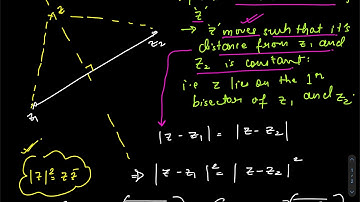 'z'
z
→ 'z' moves such that it's
distance from z₁ and
z₂ is constant:
z₂
i.e z lies on the ⊥ʳ
bisector of z₁ and z₂.
z₁
|z - z₁| = |z - z₂|
|z|² = z z̄
⇒ |z - z₁|² = |z - z₂|²